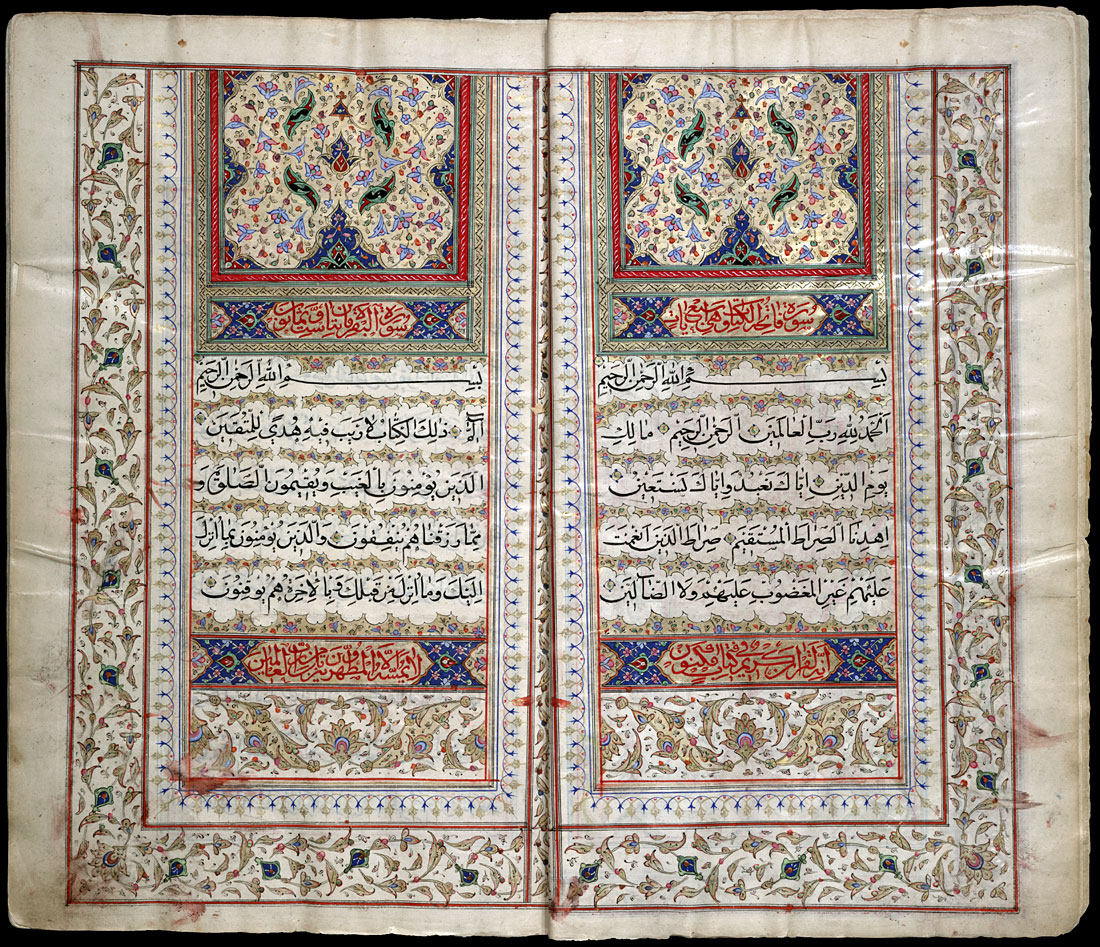 سورة فاتحة الكتاب وهى سبع ايات
بسم الله الرحمن الرحيم
الحمد لله رب العالمين الرحمن الرحيم مالك
يوم الدين اياك نعبد واياك نستعين
اهدنا الصراط المستقيم صراط الذين انعمت
عليهم غير المغضوب عليهم ولا الضالين
انه لقران كريم في كتاب مكنون
سورة البقرة
بسم الله الرحمن الرحيم
الم ذلك الكتاب لا ريب فيه هدى للمتقين
الذين يؤمنون بالغيب ويقيمون الصلوة و
مما رزقناهم ينفقون والذين يؤمنون بما انزل
اليك وما انزل من قبلك وبالاخرة هم يوقنون
لا يمسه الا المطهرون تنزيل من رب العالمين